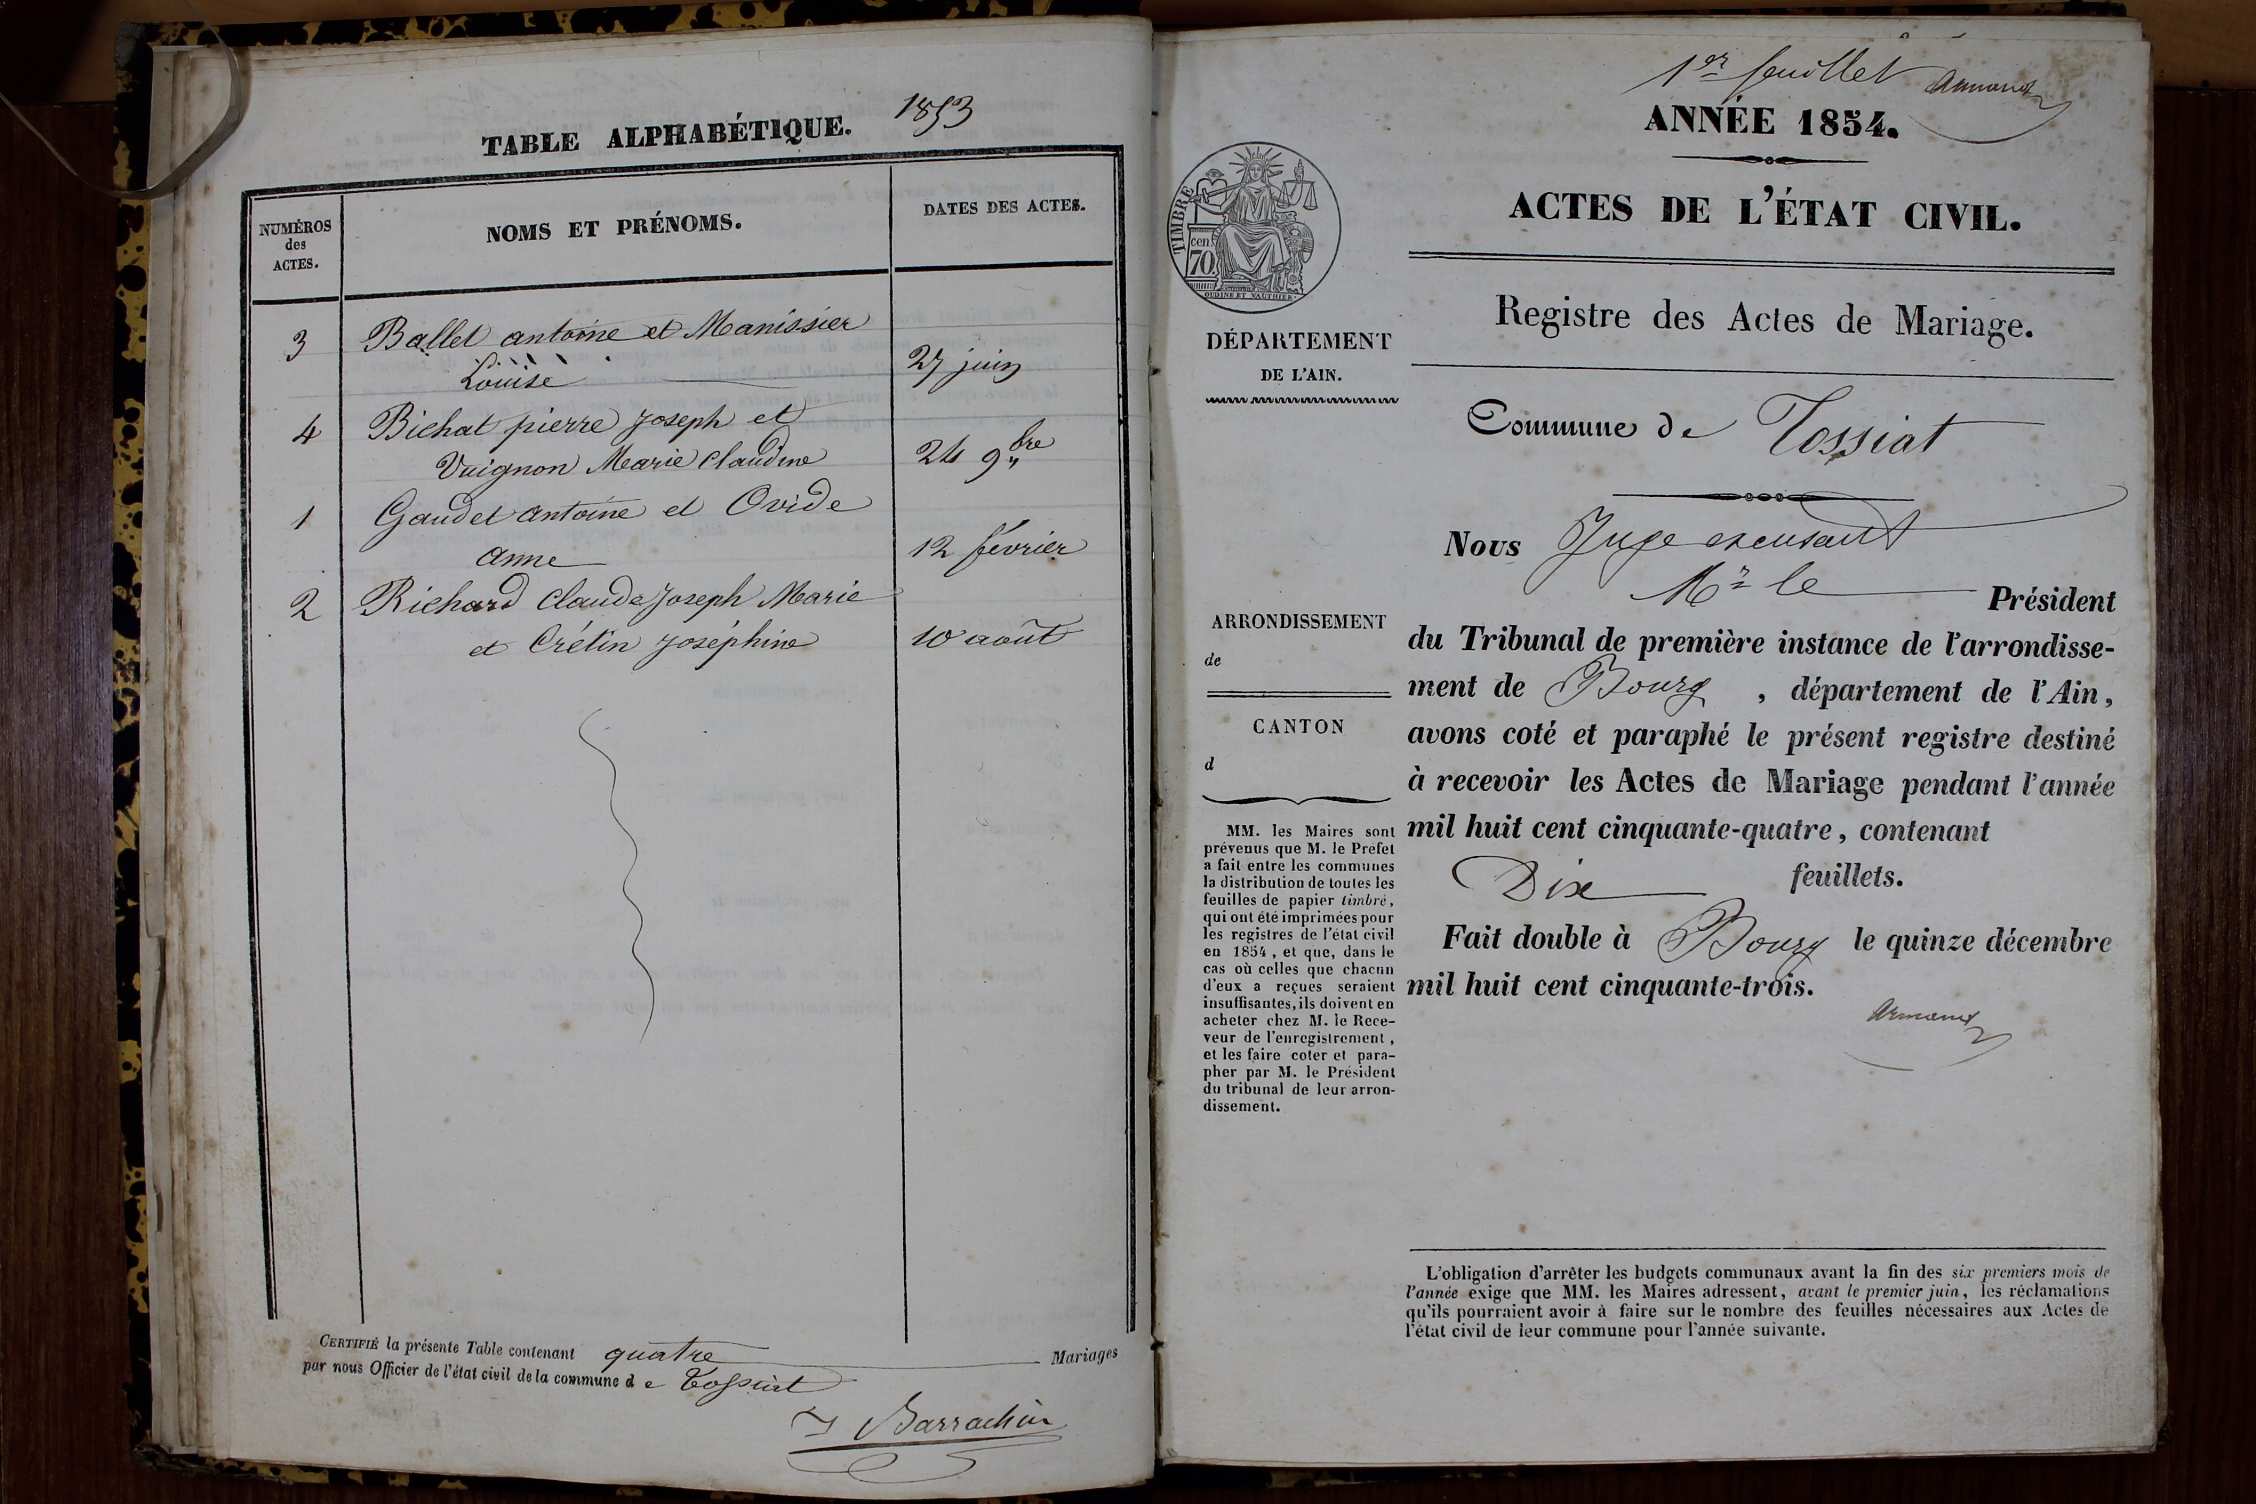 TABLE ALPHABÉTIQUE. 1853
NUMÉROS
des
ACTES.
NOMS ET PRÉNOMS.
DATES DES ACTES.
3 Ballet antoine et Manissier
Louise 27 juin
4 Bichat pierre Joseph et
Vuignon Marie Claudine 24 9bre
1 Gaudet antoine et Ovide
anne 12 février
2 Richard Claude Joseph Marie
et Crétin Joséphine 10 août
CERTIFIÉ la présente Table contenant quatre Mariages
par nous Officier de l'état civil de la commune de Tossiat
Barrachin
1er feuillet
ANNÉE 1854.
ACTES DE L'ÉTAT CIVIL.
Registre des Actes de Mariage.
TIMBRE
cen.
70
OUDINE ET VAUTHIER
DÉPARTEMENT
DE L'AIN.
ARRONDISSEMENT
de
CANTON
d
MM. les Maires sont
prévenus que M. le Préfet
a fait entre les communes
la distribution de toutes les
feuilles de papier timbré,
qui ont été imprimées pour
les registres de l'état civil
en 1854, et que, dans le
cas où celles que chacun
d'eux a reçues seraient
insuffisantes, ils doivent en
acheter chez M. le Rece-
veur de l'enregistrement,
et les faire coter et para-
pher par M. le Président
du tribunal de leur arron-
dissement.
Commune de Tossiat
Nous Juge excusant
Mr le Président
du Tribunal de première instance de l'arrondisse-
ment de Bourg, département de l'Ain,
avons coté et paraphé le présent registre destiné
à recevoir les Actes de Mariage pendant l'année
mil huit cent cinquante-quatre, contenant
Dix feuillets.
Fait double à Bourg le quinze décembre
mil huit cent cinquante-trois.
L'obligation d'arrêter les budgets communaux avant la fin des six premiers mois de
l'année exige que MM. les Maires adressent, avant le premier juin, les réclamations
qu'ils pourraient avoir à faire sur le nombre des feuilles nécessaires aux Actes de
l'état civil de leur commune pour l'année suivante.